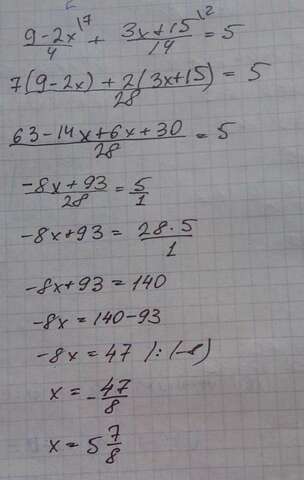 (9-2x)/4 \7 + (3x+15)/14 \2 = 5
(7(9-2x) + 2(3x+15))/28 = 5
(63-14x+6x+30)/28 = 5
(-8x+93)/28 = 5/1
-8x+93 = (28·5)/1
-8x+93 = 140
-8x = 140-93
-8x = 47 |:(-8)
x = -47/8
x = 5 7/8